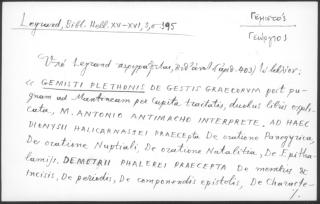 Legrand, Bibl. Hell. XV-XVI, 3, σ. 395
Γεμιστός
Γεώργιος
Ὑπὸ Legrand περιγράφεται,
« GEMISTI PLETHONIS DE GESTIS GRAECORUM post pu-
gnam ad Mantineam per capita tractatis, duobus libris expli-
cata, M. ANTONIO ANTIMACHO INTERPRETE. AD HAEC
DIONYSII HALICARNASSEI PRAECEPTA De oratione Panegyrica,
De oratione Nuptiali, De oratione Natalitia, De Epitha-
lamijs. DEMETRII PHALEREI PRAECEPTA De membris &
Incisis, De periodis, De componendis epistolis, De Characte-